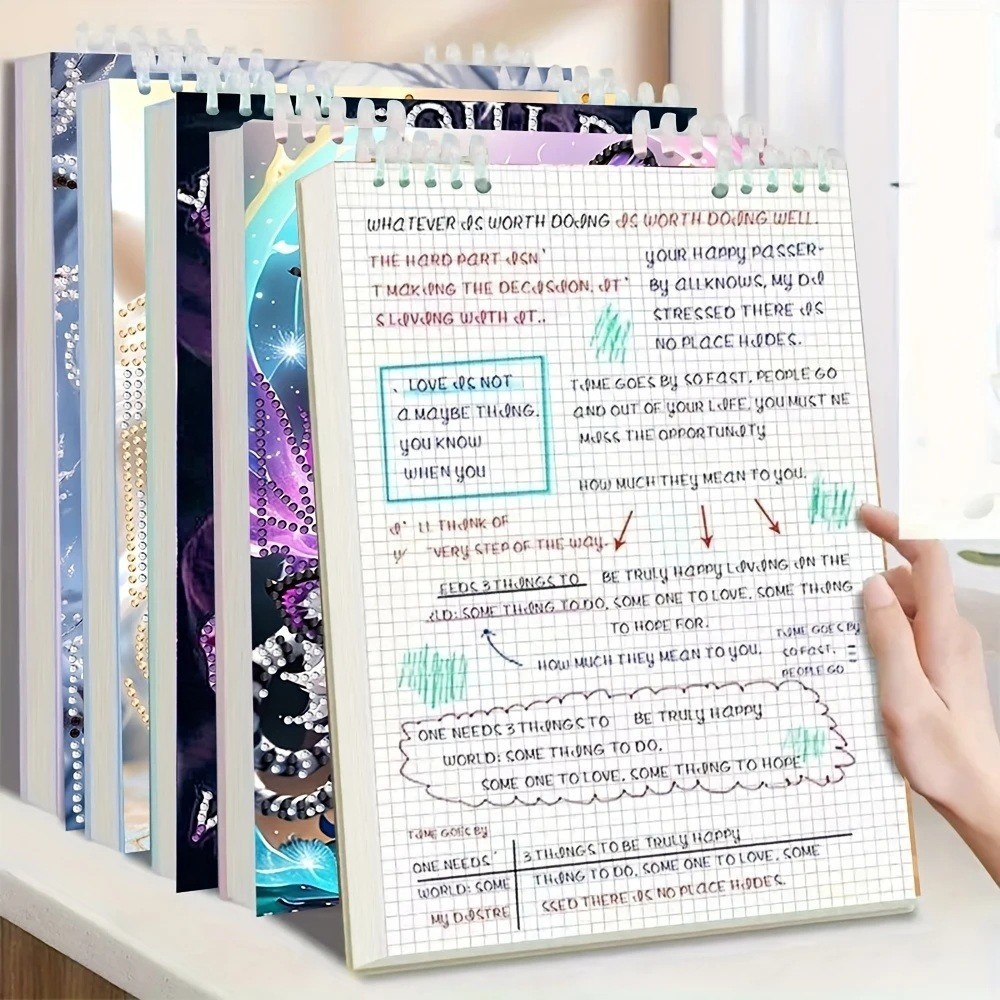 OULD
WHATEVER IS WORTH DOING IS WORTH DOING WELL.
THE HARD PART ISN'
T MAKING THE DECISION, IT'
S LIVING WITH IT..
YOUR HAPPY PASSER-
BY ALLKNOWS, MY DI
STRESSED THERE IS
NO PLACE HIDES.
. LOVE IS NOT
A MAYBE THING.
YOU KNOW
WHEN YOU
TIME GOES BY SO FAST, PEOPLE GO
AND OUT OF YOUR LIFE. YOU MUST NE
MISS THE OPPORTUNITY
HOW MUCH THEY MEAN TO YOU.
I' LL THINK OF
Y VERY STEP OF THE WAY.
EEDS 3 THINGS TO BE TRULY HAPPY LIVING IN THE
RLD: SOME THING TO DO, SOME ONE TO LOVE, SOME THING
TO HOPE FOR.
HOW MUCH THEY MEAN TO YOU.
TIME GOES BY
SO FAST,
PEOPLE GO
ONE NEEDS 3 THINGS TO BE TRULY HAPPY
WORLD: SOME THING TO DO,
SOME ONE TO LOVE, SOME THING TO HOPE
TIME GOES BY
ONE NEEDS 3 THINGS TO BE TRULY HAPPY
WORLD: SOME THING TO DO, SOME ONE TO LOVE, SOME
MY DISTRE SSED THERE IS NO PLACE HIDES.